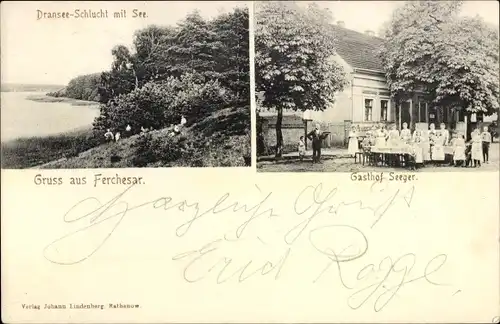 Dransee-Schlucht mit See.
Gruss aus Ferchesar.
Gasthof Seeger.
Herzlichen Gruß
Erich Rogge
Verlag Johann Lindenberg, Rathenow.